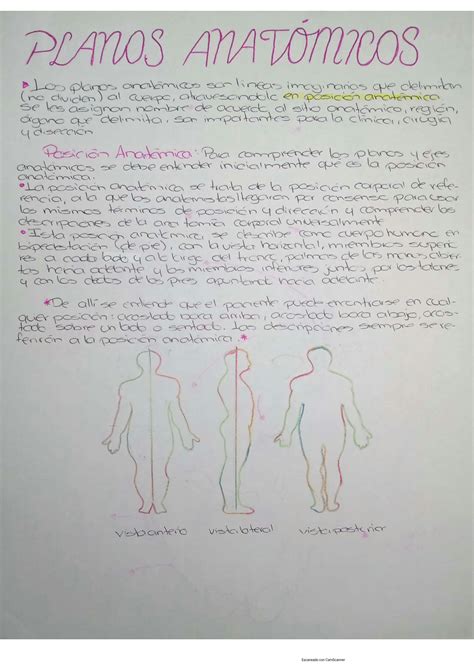 PLANOS ANATÓMICOS
Los planos anatómicos son líneas imaginarias que delimitan
(no dividen) al cuerpo, atravesandole en posición anatómica
se les designan nombre de acuerdo al sitio anatómico, región,
órgano que delimita, son importantes para la clínica, cirugía
y disección
Posición Anatómica: Para comprender los planos y ejes
anatómicos se debe entender inicialmente que es la posición
anatómica.
La posición anatómica se trata de la posición corporal de refe-
rencia, a la que los anatomistas llegaron por consenso para usar
los mismos términos de posición y dirección y comprender las
descripciones de la anatomía corporal universalmente
Esta posición anatómica, se describe al cuerpo humano en
bipedestación (de pie), con la vista horizontal, miembros superio-
res a cada lado y a lo largo del tronco, palmas de las manos abier-
tas hacia adelante y los miembros inferiores juntos, por los talones
y con los dedos de los pies apuntando hacia adelante.
*De allí se entiende que el paciente puede encontrarse en cual-
quier posición: acostado boca arriba, acostado boca abajo, acos-
tado sobre un lado o sentado. Las descripciones siempre se re-
ferirán a la posición anatómica.*
vista anterio vista lateral vista posterior
Escaneado con CamScanner